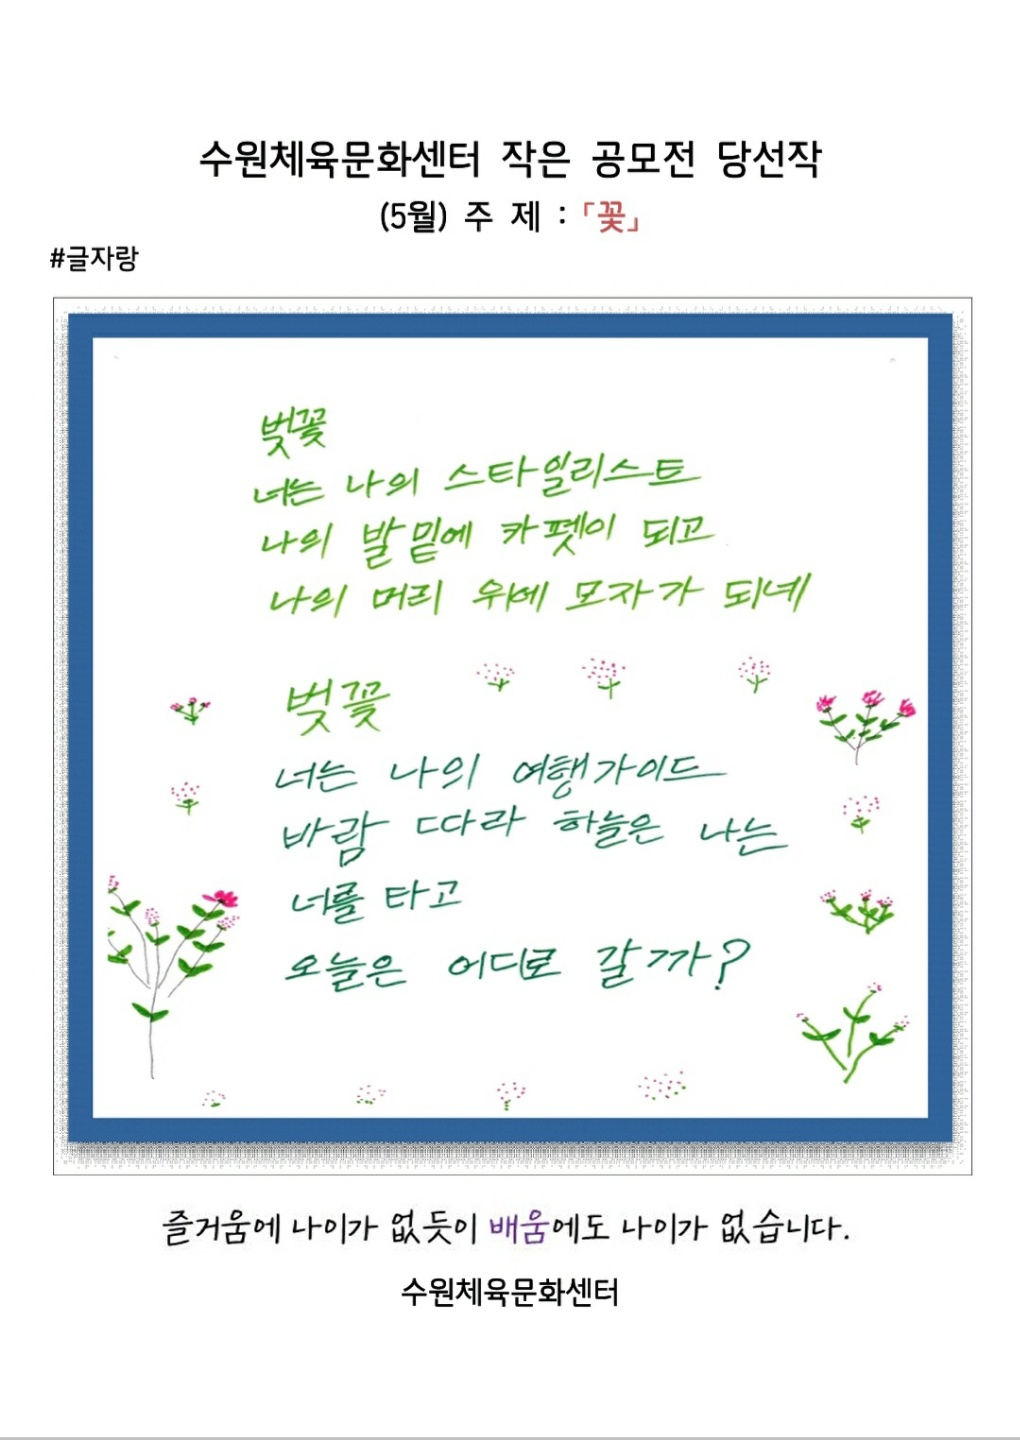 수원체육문화센터 작은 공모전 당선작
(5월) 주 제 : 「꽃」
#글자랑
벚꽃
너는 나의 스타일리스트
나의 발밑에 카펫이 되고
나의 머리 위에 모자가 되네
벚꽃
너는 나의 여행가이드
바람 따라 하늘은 나는
너를 타고
오늘은 어디로 갈까?
즐거움에 나이가 없듯이 배움에도 나이가 없습니다.
수원체육문화센터